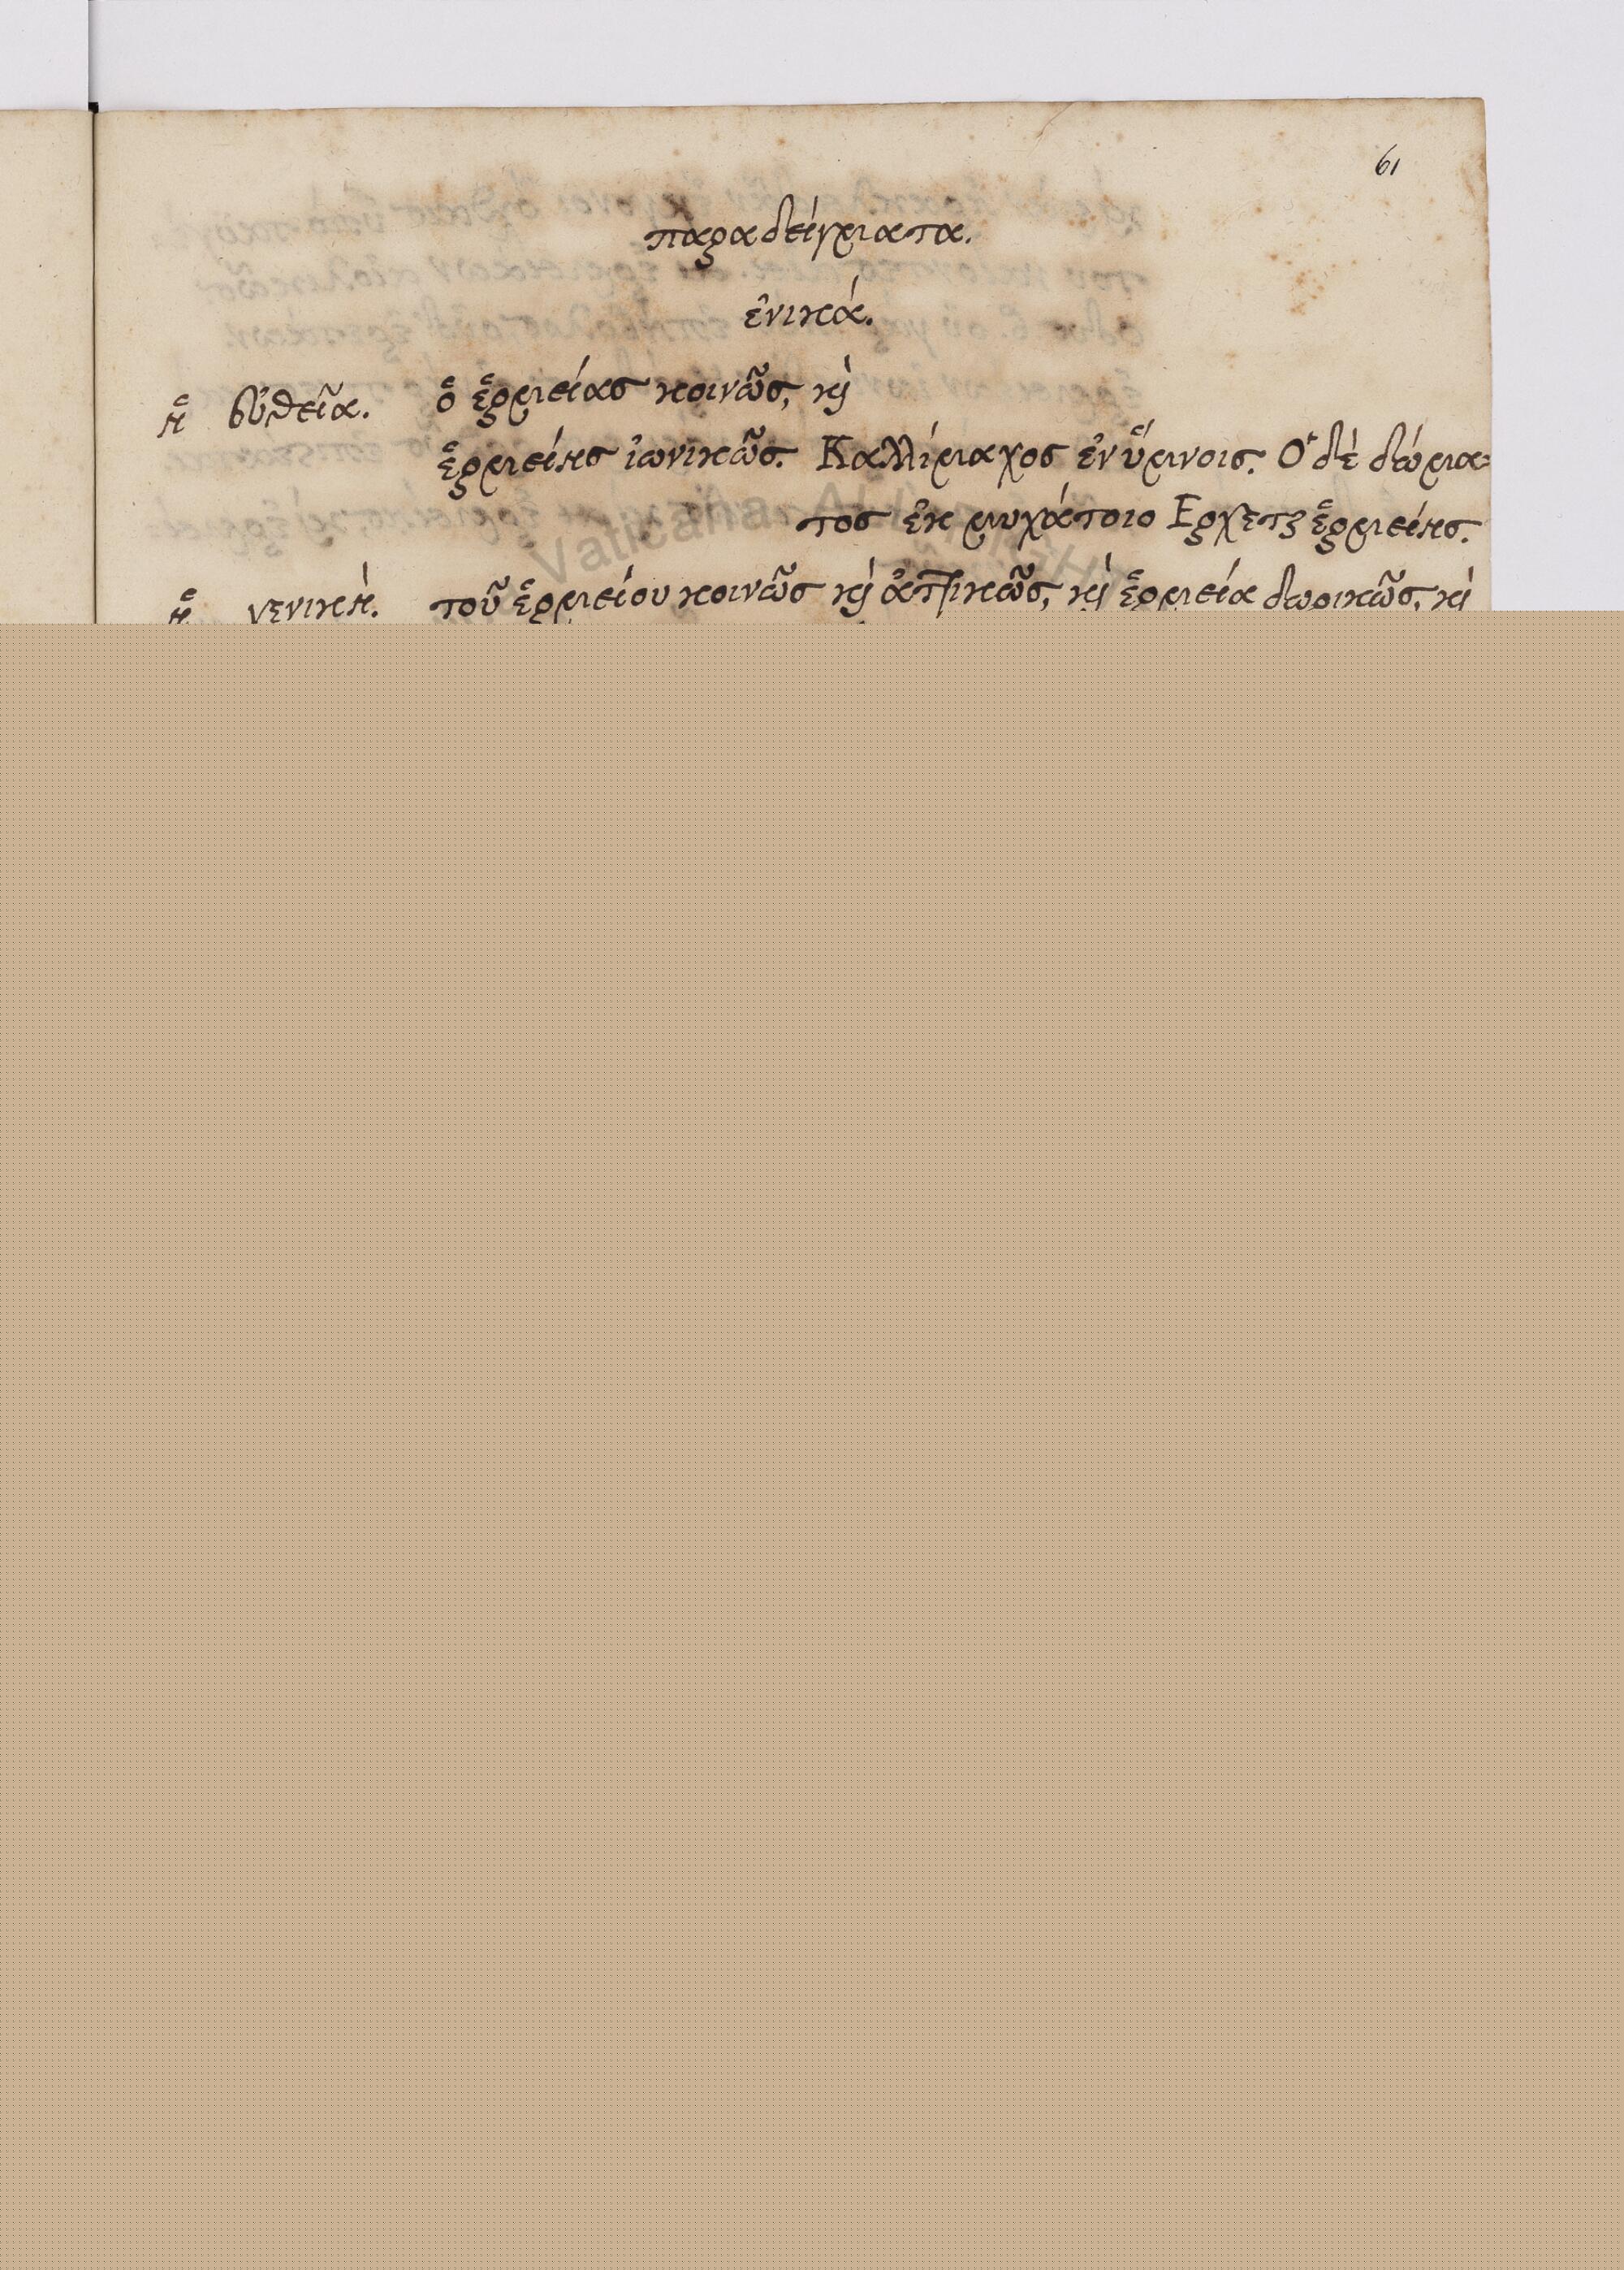 61
παραδείγματα.
ἑνικά.
ἡ εὐθεῖα. ὁ ἑρμείας κοινῶς, κὶ
ἑρμείης ἰωνικῶς. Καλλίμαχος ἐν ὕμνοις. Ὁ δὲ δώμα-
τος ἐκ μυχάτοιο Ερχεται ἑρμείης.
ἡ γενική. τοῦ ἑρμείου κοινῶς κὶ ἀττικῶς, κὶ ἑρμεία δωρικῶς, κὶ